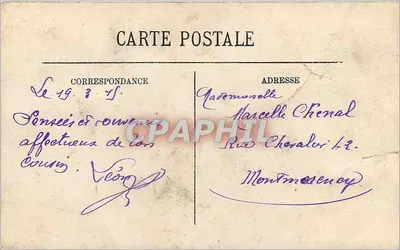 CARTE POSTALE
CORRESPONDANCE
Le 19.3.15
Pensées et souvenir
affectueux de ton
cousin. Léon
ADRESSE
Mademoiselle
Marcelle Chenal
Rue Chevalier 42
Montmorency
CPAPHIL